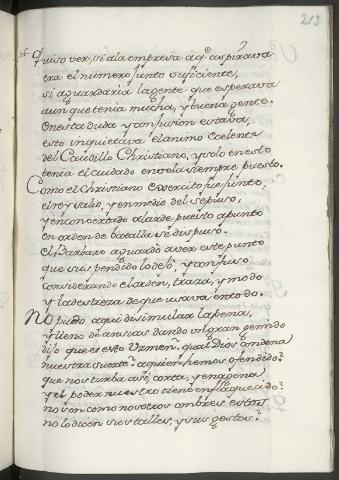 213
Quiso ver, si a la empresa aq̃ aspirava
era el numero junto suficiente,
si aguardaria la gente que esperava
aunque tenia mucha, y buena gente.
En esta duda y confusion estava,
esto inquietava el animo excelente
del Caudillo Christiano, y solo en esto
tenia el cuidado en vela siempre puesto.
Como el Christiano exercito fue junto,
el rey salio, y en medio del se puso,
y en concertado alarde puesto a punto
en orden de batalla se dispuso.
El Barbaro aguardo a ver este punto
que suspendido lo dexo, y confuso
considerando el arden, traza, y modo
y la destreza de que usava en todo.
No pudo aqui disimular la pena,
y lleno de ansias dando un gran gemido
dijo que es esto Urmen? qual Dios condena
nuestra suerte? a quien hemos ofendido?
que nos turba assi, corta, y enagena
y el poder nuestro tiene enflaquecido?
no son como nosotros ombres estos
no lo dicen sus talles, y sus gestos?